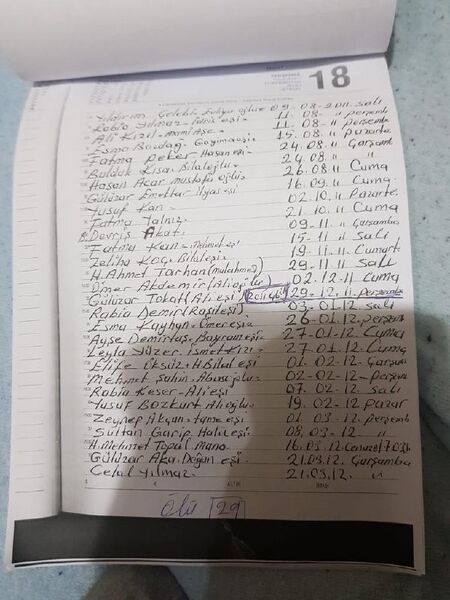 PERŞEMBE
18
Yıldırım Çelebi oğlu 09.08.2011 Salı
Rabia Yılmaz eşi 11.08.11 perşembe
Ali Kızıl 11.08.11 perşembe
Esma Bozdağ 15.08.11 pazarte
Fatma Peker Hasan eşi 24.08.11 çarşamba
Balduk Kısa Bilaloğlu 24.08.11 "
Hasan Acar mustafa oğlu 26.08.11 Cuma
Gülüzar Emektar ilyas eşi 16.09.11 Cuma
Yusuf Kan 02.10.11 Pazar
Fatma Yalnız 21.10.11 Cuma
Derviş Akat 09.11.11 çarşamba
Fatma Kan Mehmet eşi 15.11.11 Sali
Zeliha Koç Bilaleşi 19.11.11 Cumart
H. Ahmet Tarhan 29.11.11 Salı
Ömer Akdemir 02.12.11 Cuma
Gülüzar Tokat (Ali eşi) 29.12.11 perşembe
Rabia Demir (Raşiteşi) 03.01.12 Sali
Esma Kayhan Ömer eşi 26.01.12 perşemb
Ayşe Demirtaş Bayram eşi 27-01-12 Cuma
Leyla Yüzer ismet Kızı 27.01.12 Cuma
Elife Öksüz H.Bilal eşi 01.02.12 Çarşam
Mehmet Şahin 02-02-12 perşem
Rabia Keser Ali eşi 07.02.12 Sali
Yusuf Bozkurt Alioğlu 19.02.12 Pazar
Zeynep Akçan eşi 01.03.12 perşemb
Sultan Garip Halil eşi 08.03.12 "
H. Mehmet Topal 16.03.12
Gülüzar Aka Doğan eşi 21.03.12 Çarşamba
Celal Yılmaz 21.03.12 "
Ölü 29